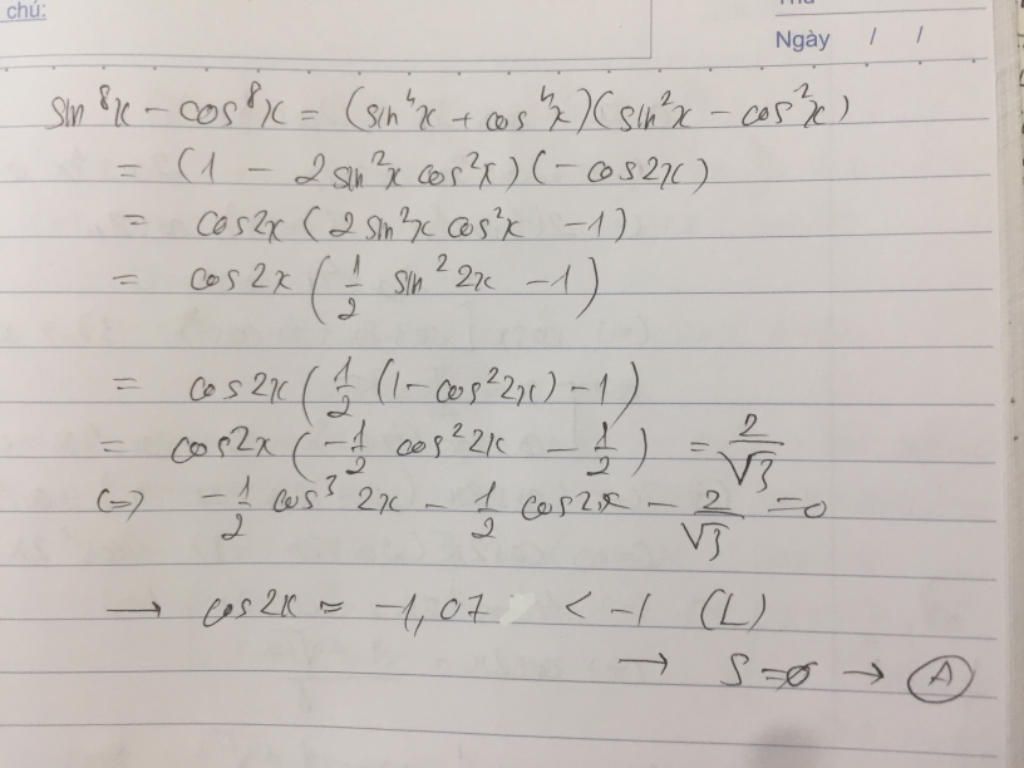 chú:
Ngày / /
sin⁸x - cos⁸x = (sin⁴x + cos⁴x)(sin²x - cos²x)
= (1 - 2sin²x cos²x)(-cos2x)
= cos2x(2sin²x cos²x - 1)
= cos2x(1/2 sin²2x - 1)
= cos2x(1/2(1-cos²2x) - 1)
= cos2x(-1/2 cos²2x - 1/2) = 2/√3
<=> -1/2 cos³2x - 1/2 cos2x - 2/√3 = 0
→ cos2x = -1,07 < -1 (L)
→ S = ∅ → A